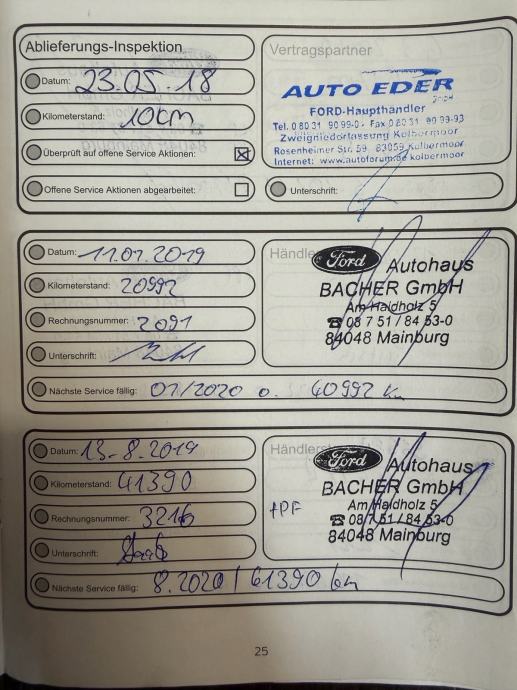 Ablieferungs-Inspektion
Datum: 23.05.18
Kilometerstand: 10km
Überprüft auf offene Service Aktionen: ☒
Offene Service Aktionen abgearbeitet: ☐
Vertragspartner
AUTO EDER
GmbH
FORD-Haupthändler
Tel. 0 80 31 90 99-0 · Fax 0 80 31 90 99-93
Zweigniederlassung Kolbermoor
Rosenheimer Str. 59 83059 Kolbermoor
Internet: www.autoforum.de kolbermoor
Unterschrift:
Datum: 11.01.2019
Kilometerstand: 20992
Rechnungsnummer: 2091
Unterschrift:
Nächste Service fällig: 01/2020 o. 40992 km
Ford Autohaus
BACHER GmbH
Am Haldholz 5
☎ 08 7 51 / 84 53-0
84048 Mainburg
Datum: 13-8.2019
Kilometerstand: 41390
Rechnungsnummer: 3216
Unterschrift:
Nächste Service fällig: 8.2020 / 61390 km
Ford Autohaus
BACHER GmbH
Am Haldholz 5
☎ 08 7 51 / 84 53-0
84048 Mainburg
25